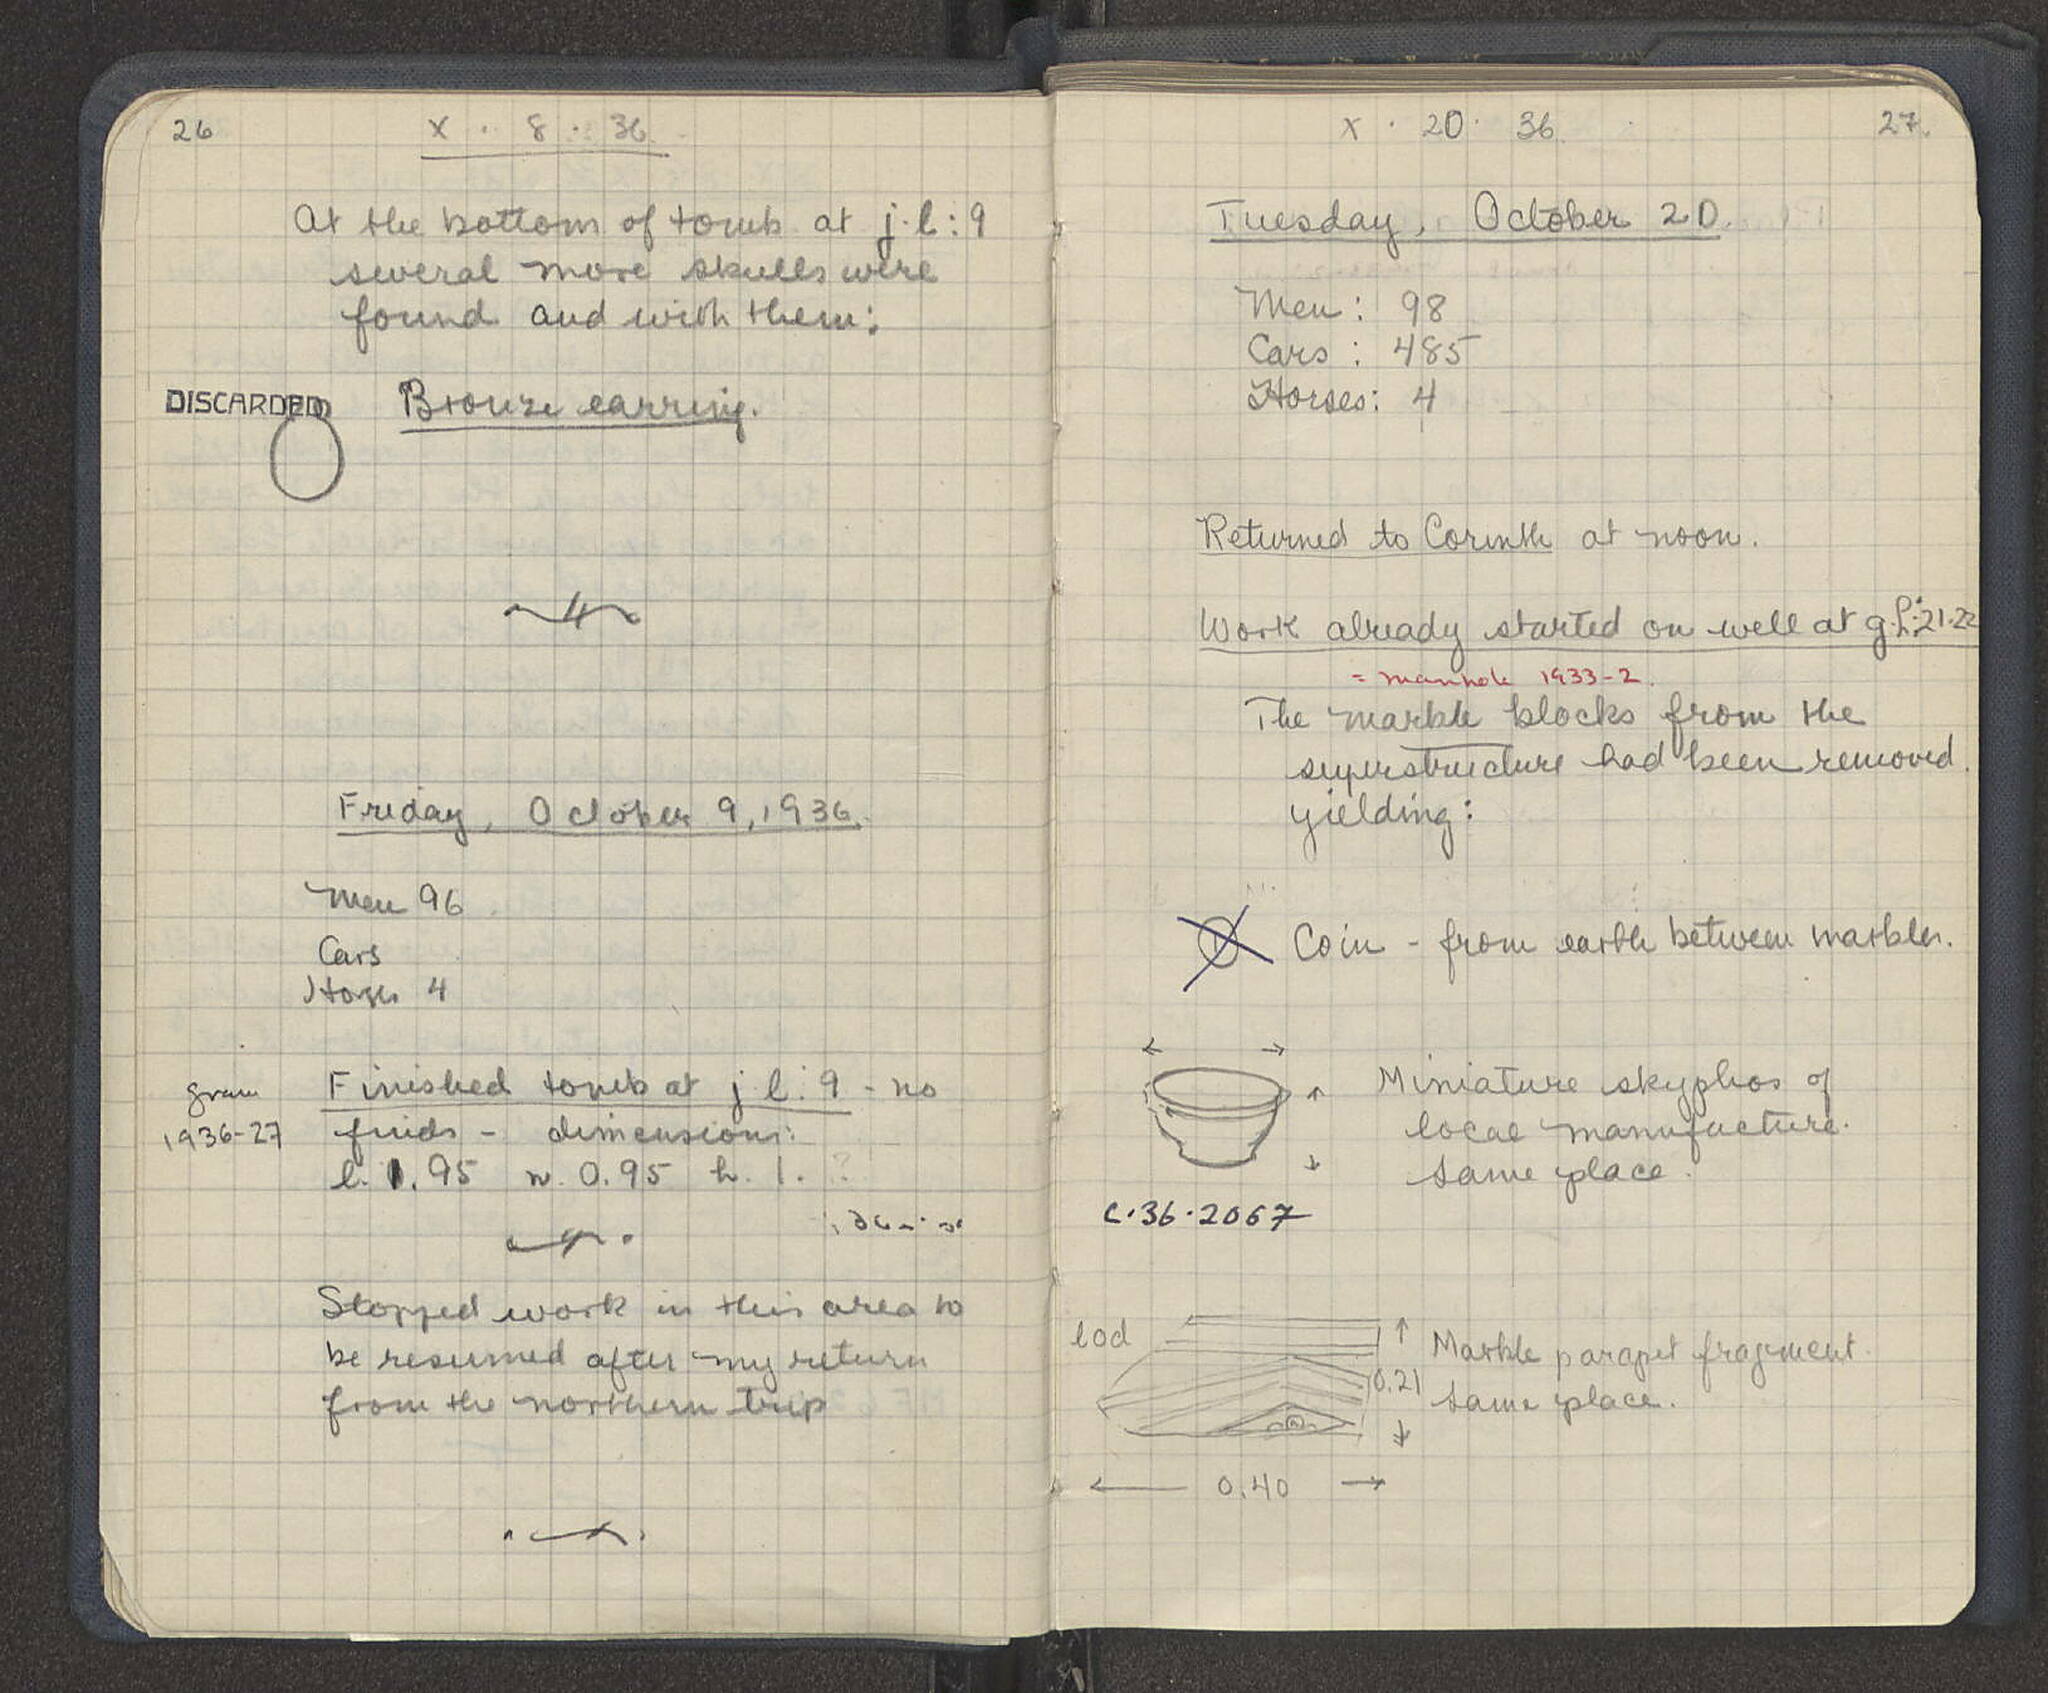 26
X · 8 · 36
At the bottom of tomb at j.l:9
several more skulls were
found and with them:
DISCARDED
Bronze earring.
Friday, October 9, 1936.
Men 96
Cars
Horses 4
Grave
1936-27
Finished tomb at j l:9 - no
finds - dimensions:
l. 1.95 w. 0.95 h. 1. ?
Stopped work in this area to
be resumed after my return
from the northern trip
X · 20 · 36
27.
Tuesday, October 20.
Men: 98
Cars: 485
Horses: 4
Returned to Corinth at noon.
Work already started on well at g.h:21.22
= manhole 1933-2.
The marble blocks from the
superstructure had been removed
yielding:
Coin - from earth between marbles.
Miniature skyphos of
local manufacture.
same place.
C·36·2067
lod
0.21
Marble parapet fragment
same place.
0.40